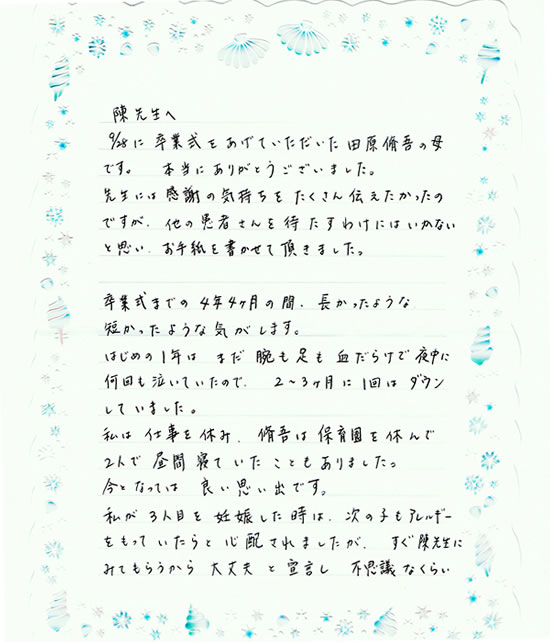 陳先生へ
9/28に 卒業式をあげていただいた 田原脩吾の母
です。 本当にありがとうございました。
先生には 感謝の気持ちを たくさん伝えたかったの
ですが、他の患者さんを待たすわけにはいかない
と思い、お手紙を書かせて頂きました。
卒業式までの 4年4ヶ月の間、長かったような
短かったような気がします。
はじめの1年は まだ 腕も足も 血だらけで 夜中に
何回も泣いていたので、 2〜3ヶ月に1回は ダウン
していました。
私は 仕事を休み、脩吾は 保育園を休んで
2人で 昼間 寝ていたこともありました。
今となっては 良い思い出です。
私が 3人目を 妊娠した時は、次の子もアレルギー
をもっていたらと 心配されましたが、 すぐ陳先生に
みてもらうから 大丈夫 と宣言し 不思議なくらい